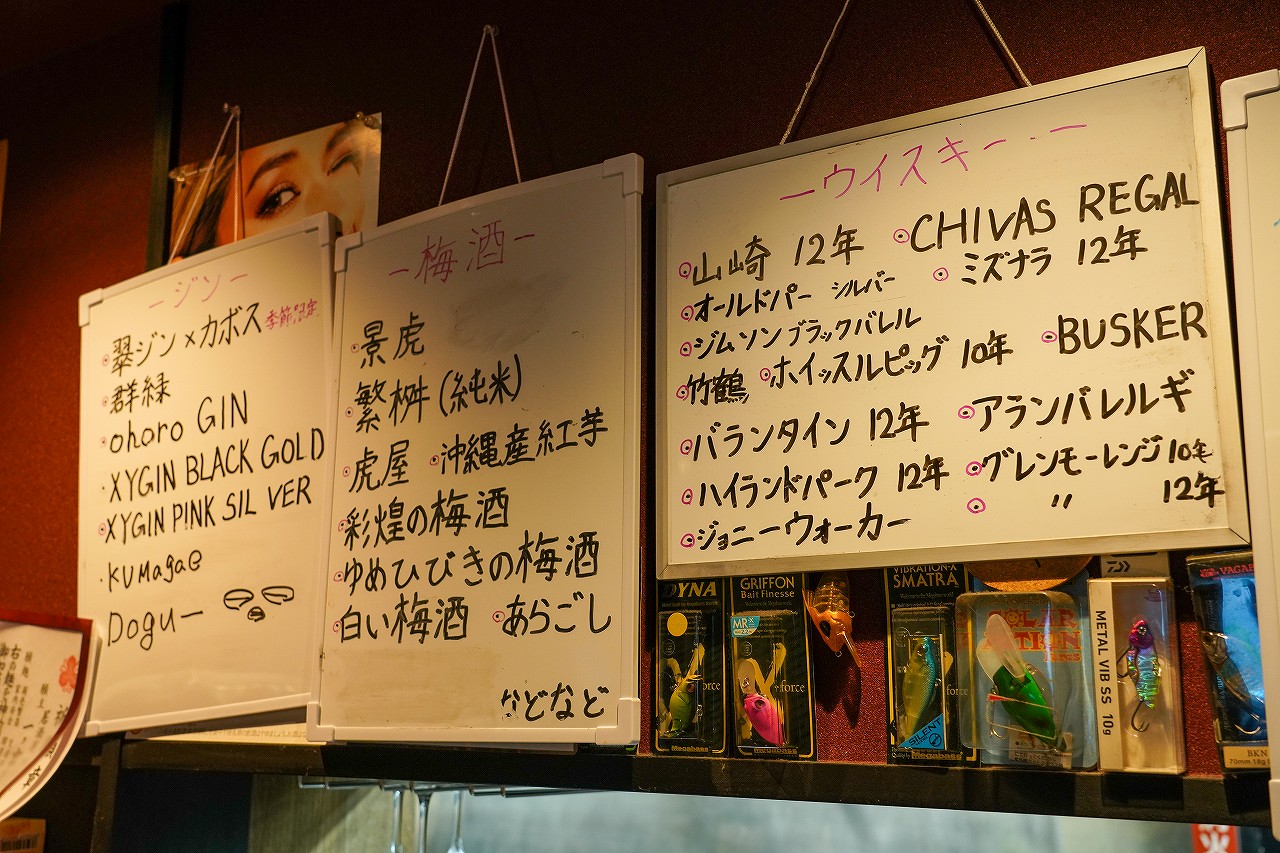 ージンー
翠ジン×カボス 季節限定
群緑
ohoro GIN
XYGIN BLACK GOLD
XYGIN PINK SILVER
KUMAgae
Doguー
ー梅酒ー
景虎
繁桝(純米)
虎屋 沖縄産紅芋
彩煌の梅酒
ゆめひびきの梅酒
白い梅酒 あらごし
などなど
ーウイスキーー
山崎 12年 CHIVAS REGAL
オールドパー シルバー ミズナラ 12年
ジムソン ブラックバレル
竹鶴 ホイッスルピッグ 10年 BUSKER
バランタイン 12年 アランバレルギ
ハイランドパーク 12年 グレンモーレンジ 10年
ジョニーウォーカー 〃 12年
DYNA
force
Megabass
GRIFFON
Bait Finesse
MR-X
force
Megabass
VIBRATION-X
SMATRA
force
SILENT
Megabass
METAL VIB SS 10g
BKN
70mm 18g